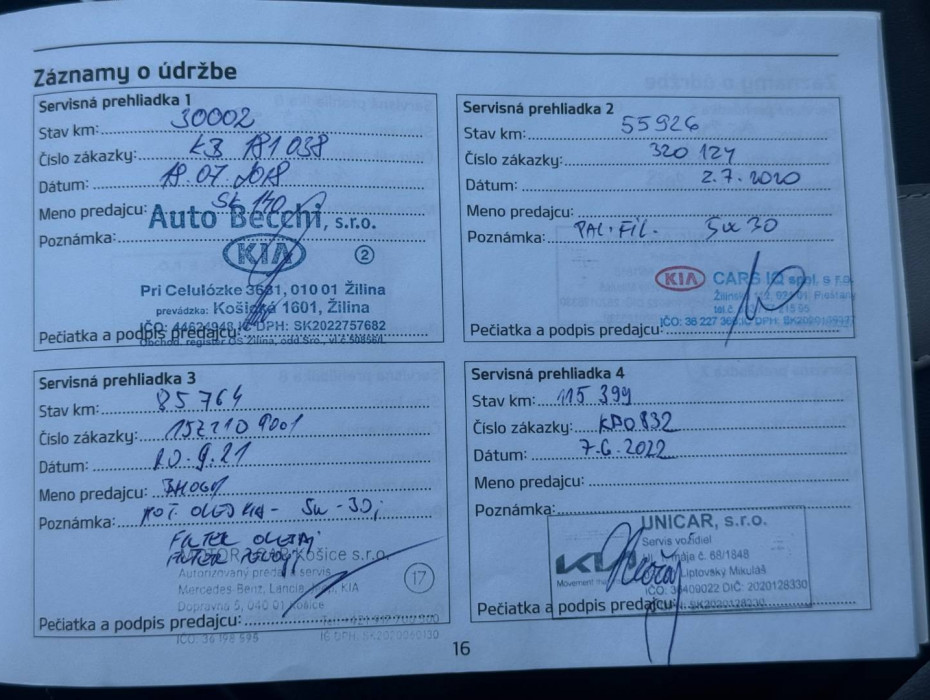 Záznamy o údržbe
Servisná prehliadka 1
Stav km: 30002
Číslo zákazky: KB 181 038
Dátum: 18.07.2018
Meno predajcu: SK 140
Auto Becchi, s.r.o.
Poznámka:
KIA 2
Pri Celulózke 3681, 010 01 Žilina
prevádzka: Košická 1601, Žilina
IČO: 44624948, IČ DPH: SK2022757682
Pečiatka a podpis predajcu:
Obchod. register OS Žilina, odd.Sro., vl.č.50856/L
Servisná prehliadka 2
Stav km: 55926
Číslo zákazky: 320 124
Dátum: 2.7.2020
Meno predajcu:
Poznámka: PAL. FIL. 5W30
KIA CARS IQ spol. s r.o.
IČO: 36 227
Pečiatka a podpis predajcu:
Servisná prehliadka 3
Stav km: 85 764
Číslo zákazky: 15Z210 9001
Dátum: 10.9.21
Meno predajcu:
Poznámka: MOT. OLEJ KIA - 5W-30,
FILTER OLEJA,
FILTER
MOTOR Košice s.r.o.
Autorizovaný predaj a servis
Mercedes-Benz, Lancia, Jeep, KIA
17
Dopravná 5, 040 01 Košice
Pečiatka a podpis predajcu:
IČO: 36 198 595 IČ DPH: SK2020060130
Servisná prehliadka 4
Stav km: 115 399
Číslo zákazky: KAO832
Dátum: 7.6.2022
Meno predajcu:
Poznámka:
UNICAR, s.r.o.
Servis vozidiel
KIA Ul. mája č. 68/1848
Movement Liptovský Mikuláš
IČO: 36409022 DIČ: 2020128330
Pečiatka a podpis predajcu:
16